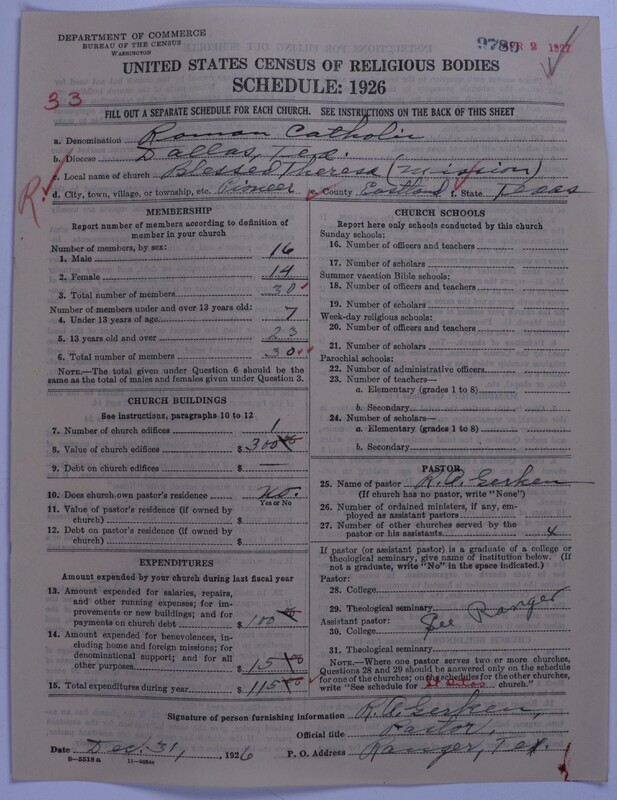 DEPARTMENT OF COMMERCE
BUREAU OF THE CENSUS
WASHINGTON
9789 APR 2 1927
UNITED STATES CENSUS OF RELIGIOUS BODIES
SCHEDULE: 1926
33
FILL OUT A SEPARATE SCHEDULE FOR EACH CHURCH. SEE INSTRUCTIONS ON THE BACK OF THIS SHEET
a. Denomination Roman Catholic
b. Diocese Dallas, Tex.
c. Local name of church Blessed Theresa (Mission)
R. d. City, town, village, or township, etc. Pioneer e. County Eastland f. State Texas
MEMBERSHIP
Report number of members according to definition of
member in your church
Number of members, by sex:
1. Male 16
2. Female 14
3. Total number of members 30
Number of members under and over 13 years old:
4. Under 13 years of age 7
5. 13 years old and over 23
6. Total number of members 30
NOTE.—The total given under Question 6 should be
the same as the total of males and females given under Question 3.
CHURCH BUILDINGS
See instructions, paragraphs 10 to 12
7. Number of church edifices 1
8. Value of church edifices $ 300 00
9. Debt on church edifices $ —
10. Does church own pastor's residence No.
Yes or No
11. Value of pastor's residence (if owned by
church) $
12. Debt on pastor's residence (if owned by
church) $
EXPENDITURES
Amount expended by your church during last fiscal year
13. Amount expended for salaries, repairs,
and other running expenses; for im-
provements or new buildings; and for
payments on church debt $ 100 00
14. Amount expended for benevolences, in-
cluding home and foreign missions; for
denominational support; and for all
other purposes $ 15 00
15. Total expenditures during year $ 115 00
CHURCH SCHOOLS
Report here only schools conducted by this church
Sunday schools:
16. Number of officers and teachers
17. Number of scholars
Summer vacation Bible schools:
18. Number of officers and teachers
19. Number of scholars
Week-day religious schools:
20. Number of officers and teachers
21. Number of scholars
Parochial schools:
22. Number of administrative officers
23. Number of teachers—
a. Elementary (grades 1 to 8)
b. Secondary
24. Number of scholars—
a. Elementary (grades 1 to 8)
b. Secondary
PASTOR
25. Name of pastor R. A. Gerken
(If church has no pastor, write "None")
26. Number of ordained ministers, if any, em-
ployed as assistant pastors
27. Number of other churches served by the
pastor or his assistants 4
If pastor (or assistant pastor) is a graduate of a college or
theological seminary, give name of institution below. (If
not a graduate, write "No" in the space indicated.)
Pastor:
28. College
29. Theological seminary
See Ranger
Assistant pastor:
30. College
31. Theological seminary
NOTE.—Where one pastor serves two or more churches,
Questions 28 and 29 should be answered only on the schedule
for one of the churches; on the schedules for the other churches,
write "See schedule for St Rita's church."
Signature of person furnishing information R. A. Gerken,
Official title Pastor,
Date Dec. 31, 1926 P. O. Address Ranger, Tex.
8—5518 a